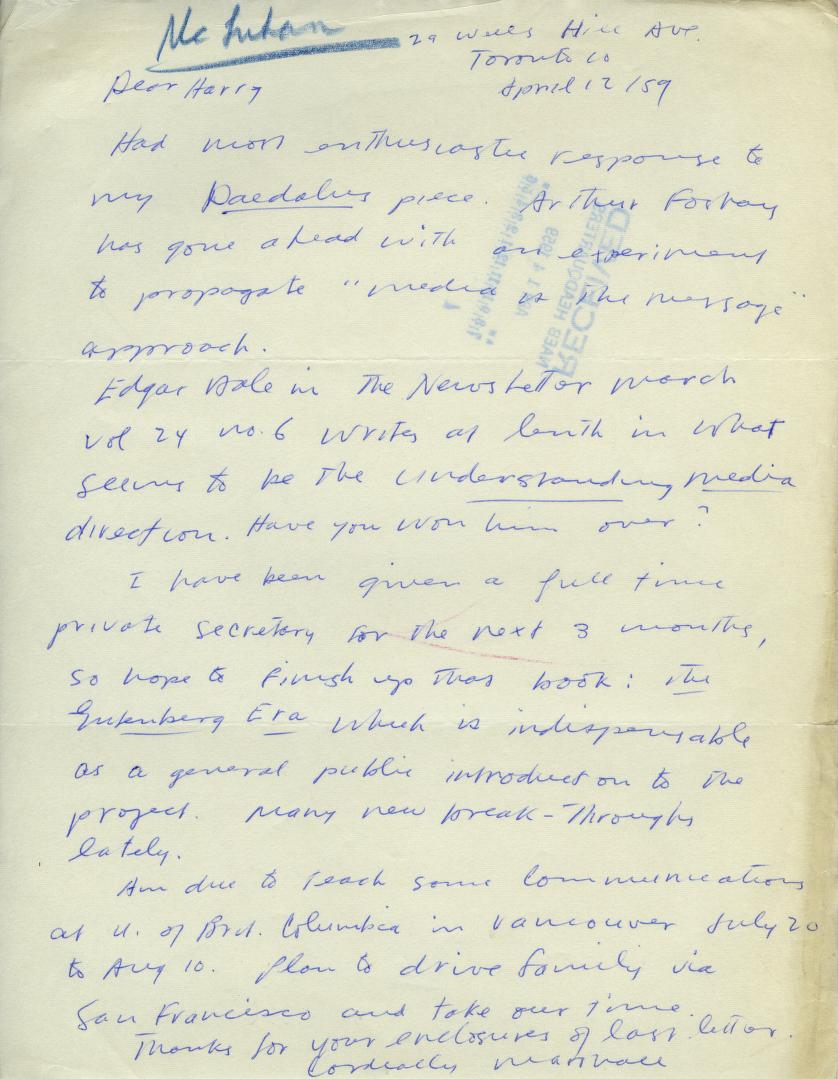 McLuhan
29 Wells Hill Ave.
Toronto 10
April 12/59
Dear Harry
Had most enthusiastic response to
my Daedalus piece. Arthur Foshay
has gone ahead with an experiment
to propagate "media is the message"
approach.
Edgar Dale in the NewsLetter march
vol 24 no. 6 writes at lenth in what
seems to be the understanding media
direction. Have you won him over?
I have been given a full time
private secretary for the next 3 months,
so hope to finish up that book: The
Gutenberg Era which is indispensable
as a general public introduction to the
project. Many new break-Throughs
lately.
Am due to teach some communications
at U. of Brit. Columbia in Vancouver July 20
to Aug 10. Plan to drive family via
San Francisco and take our time.
Thanks for your enclosures of last letter.
Cordially Marshall
RECEIVED
NAEB HEADQUARTERS
14 1959